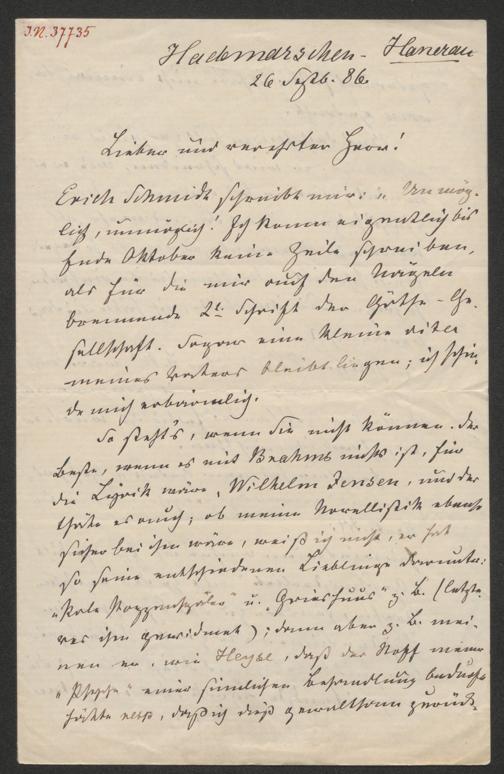 I.N. 37735
Hademarschen-Hanerau
26 Septb. 86.
Lieber und verehrter Herr!
Erich Schmidt schreibt mir: „Unmög-
lich, unmöglich! Ich kann eigentlich bis
Ende Oktober keine Zeile schreiben,
als für die mir auf den Nägeln
brennende 2te Schrift der Göthe-Ge-
sellschaft. Sogar eine kleine
meines Vaters bleibt liegen; ich schin-
de mich erbärmlich.
So steht's, wenn Sie nicht können. Der
Beste, wenn es mit Brahms nichts ist, für
die Lyrik wäre, Wilhelm Jensen, und der
thäte es auch; ob meine Novellistik ebenso
sicher bei ihm wäre, weiß ich nicht, er hat
so seine entschiedenen Lieblinge darunter:
„Pole Poppenspäler" u. Grieshuus" z. B. (letzte-
res ihm gewidmet); dann aber z. B. mei-
nen er, wie Heyse, daß der Stoff meiner
„Psyche" einer sinnlichen Behandlung bedurft
hätte, daß ich dieß gewaltsam zurück-